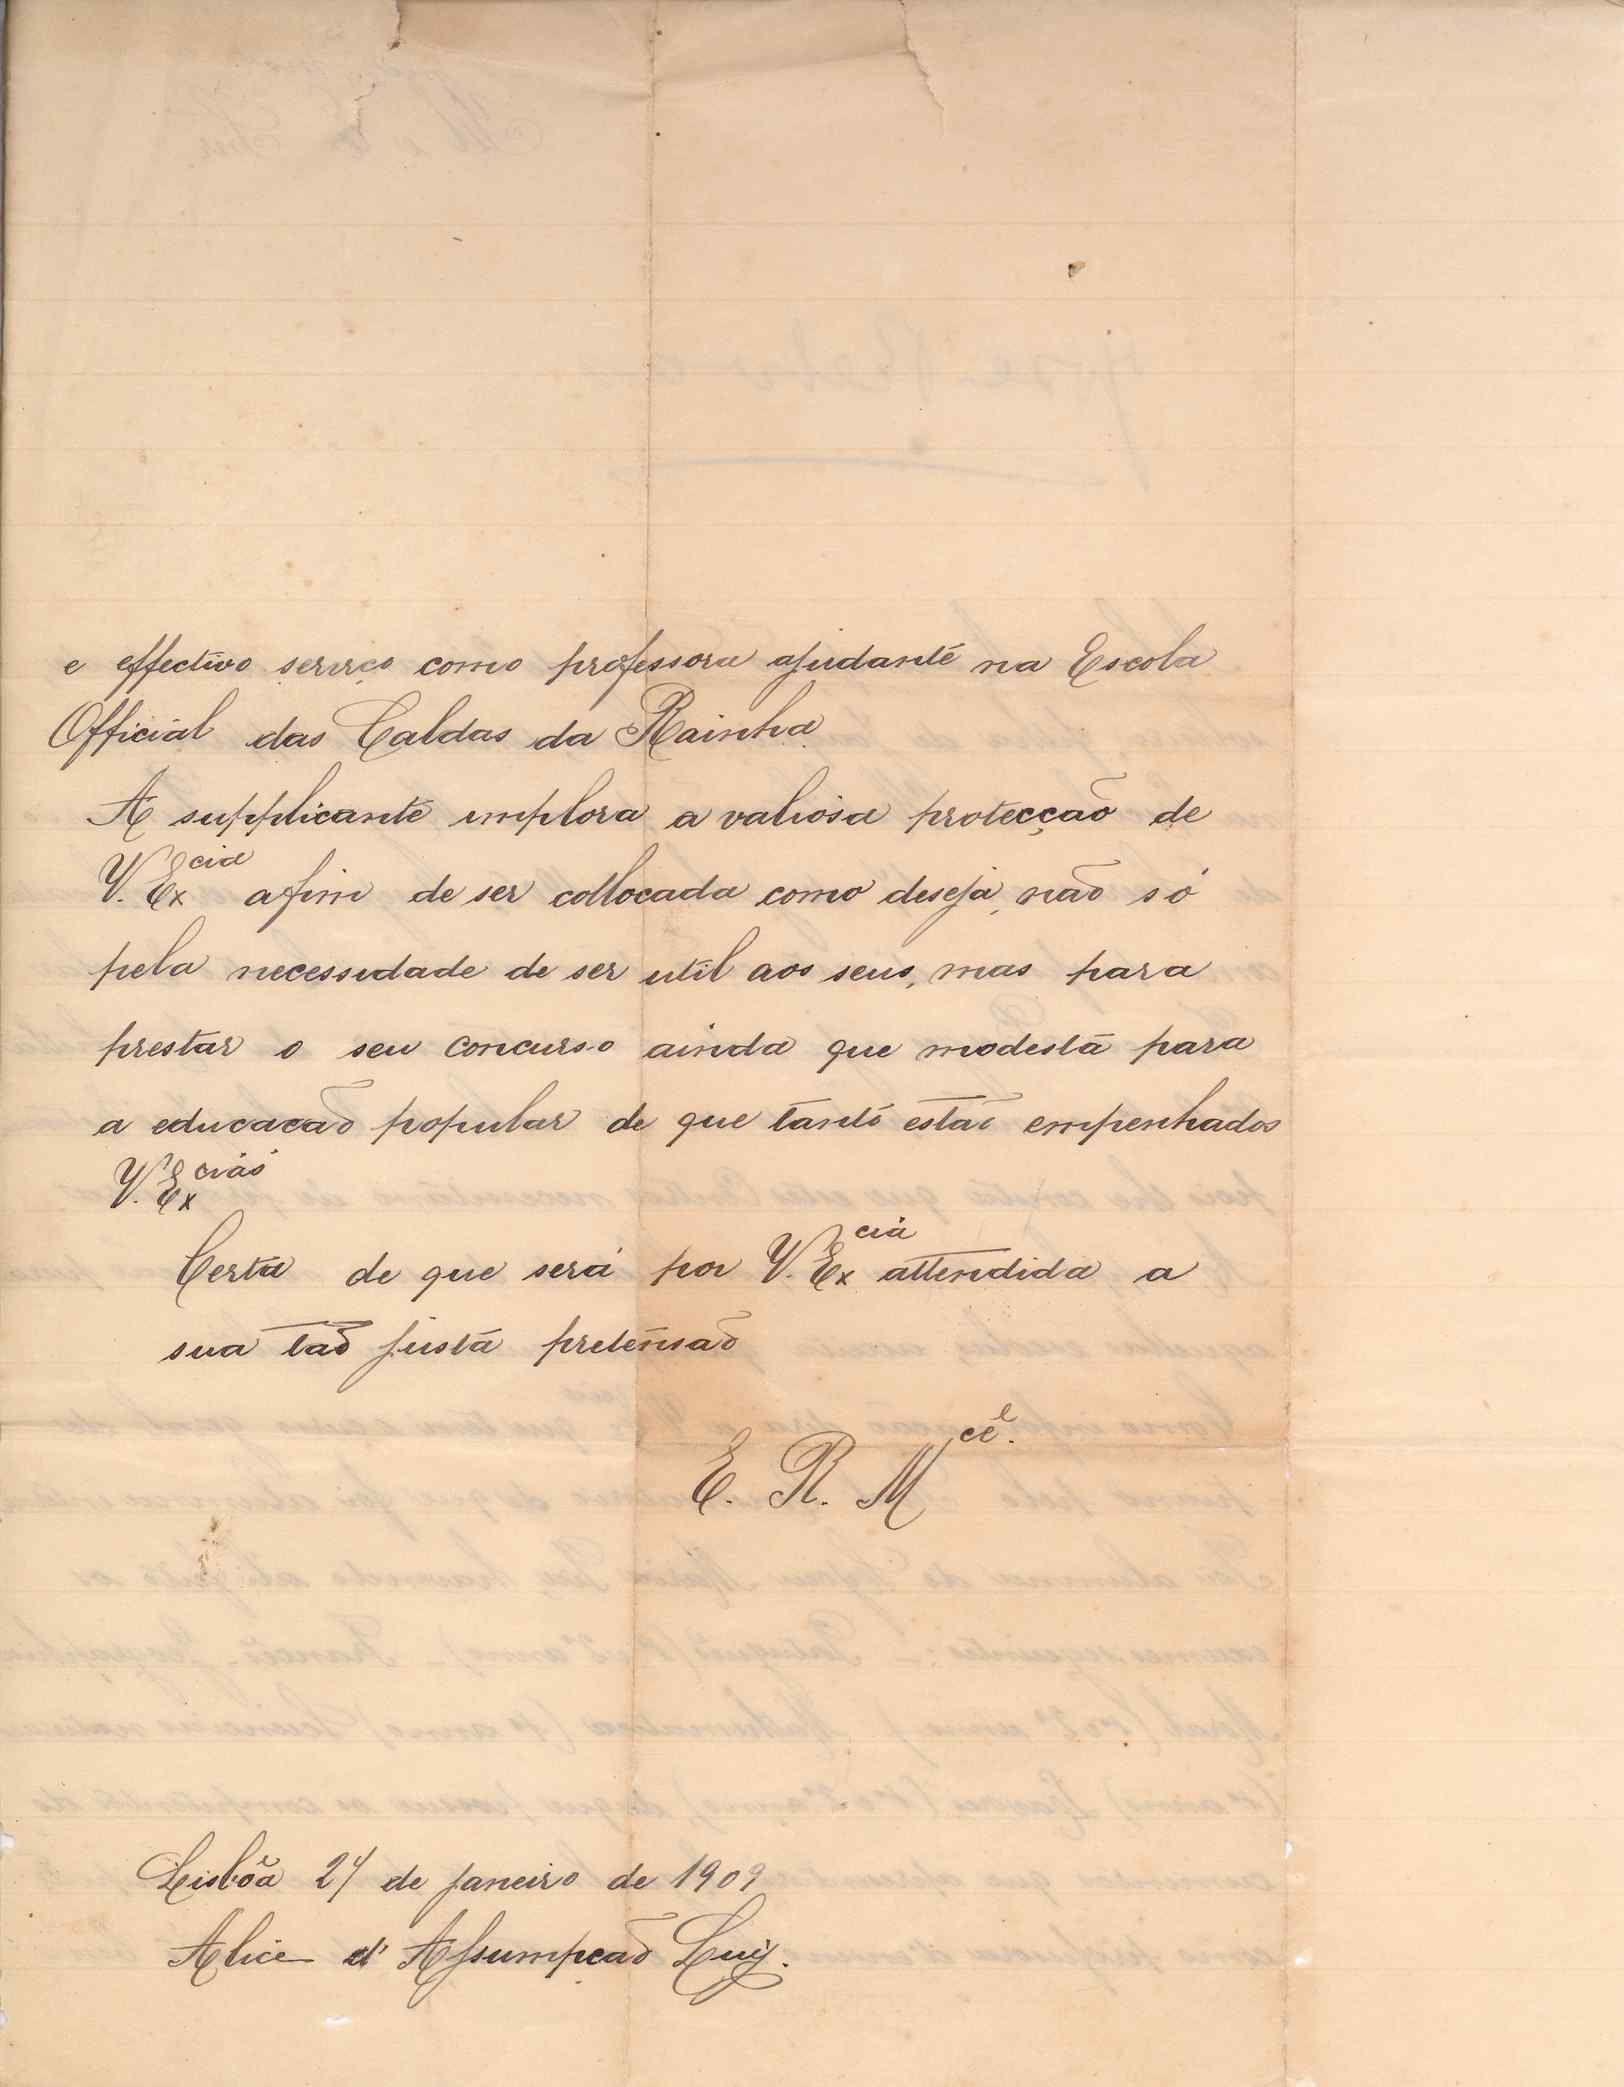 e effectivo serviço como professora ajudante na Escola
Official das Caldas da Rainha
A supplicante implora a valiosa protecção de
V. Ex.cia afim de ser collocada como deseja, não só
pela necessidade de ser util aos seus, mas para
prestar o seu concurso ainda que modesta para
a educacão popular de que tanto estão empenhados
V. Ex.cias
Certa de que será por V. Ex.cia attendida a
sua tão justa pretensão
E. R. M.cê
Lisbôa 27 de Janeiro de 1909
Alice d'Assumpcão Luiz.